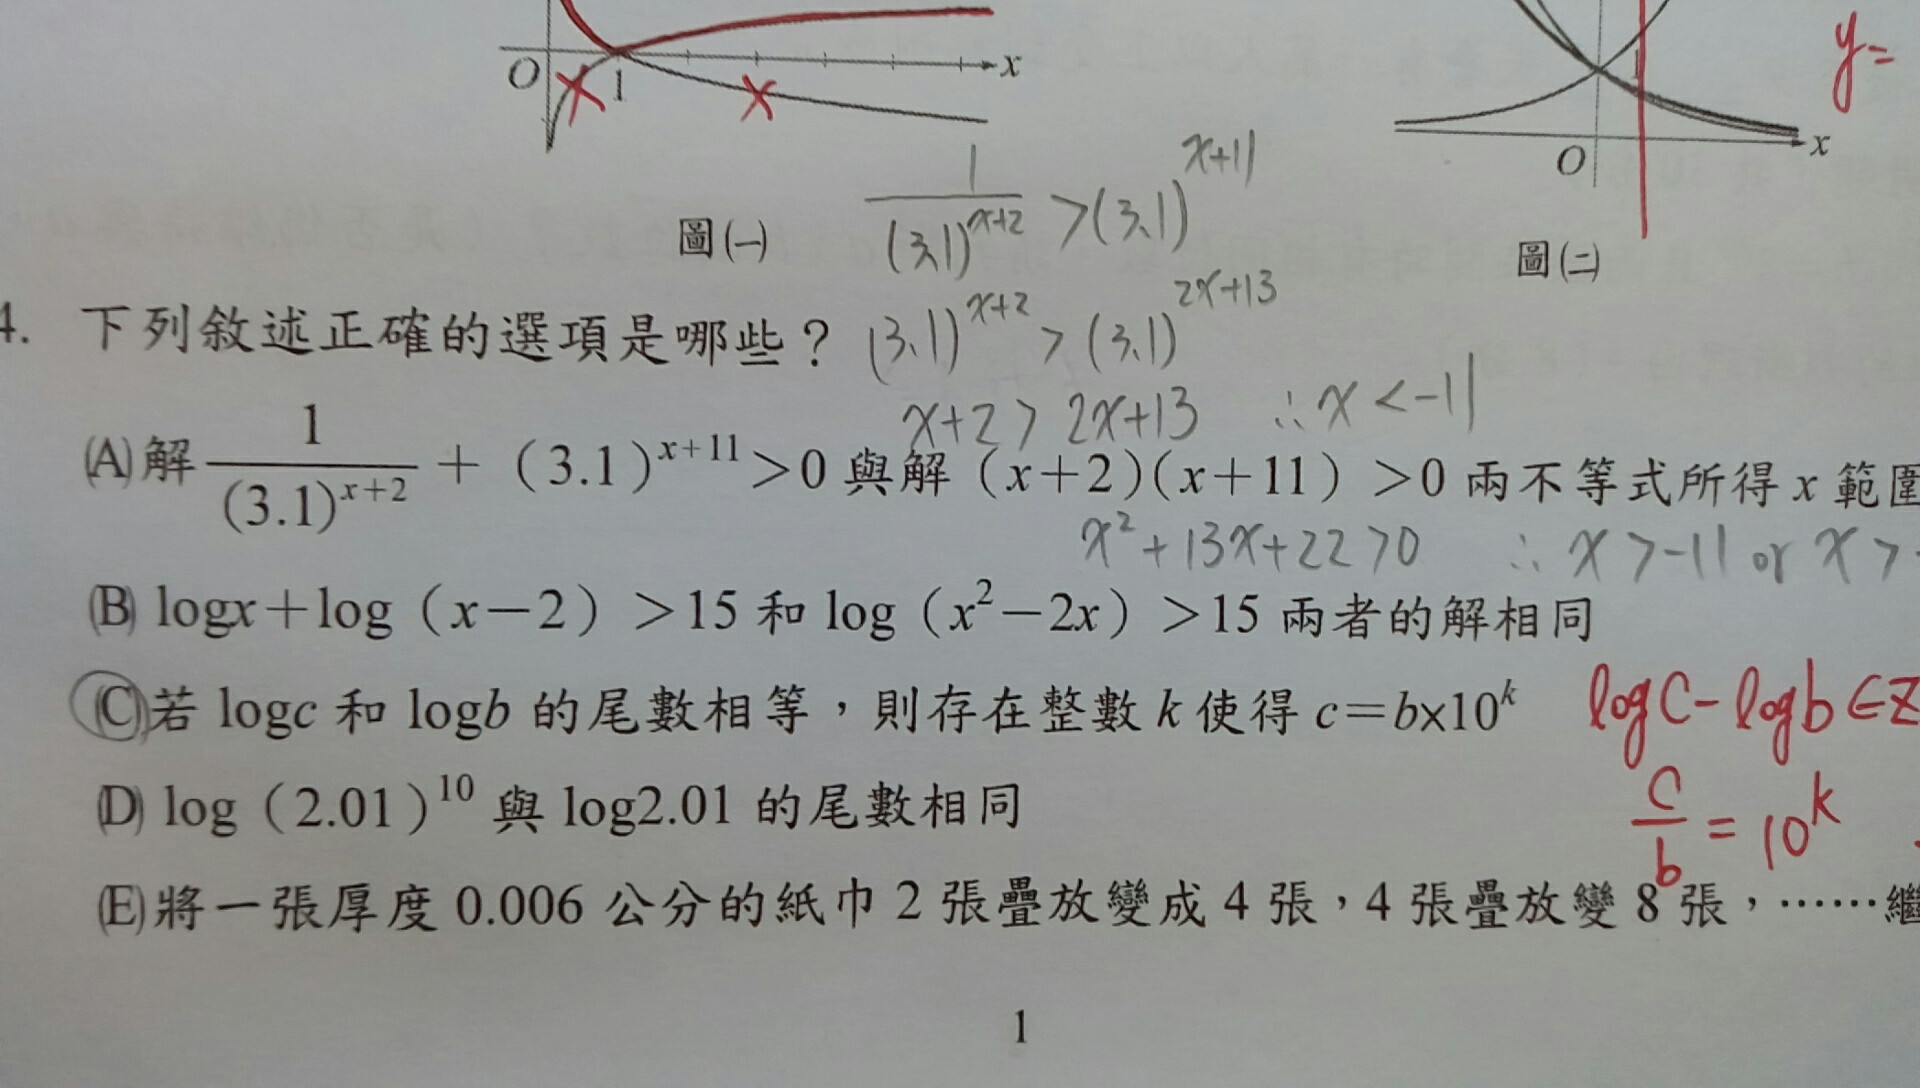 O 1 x
y=
O 1 x
圖(一)
圖(二)
1/(3.1)^{x+2} > (3.1)^{x+11}
4. 下列敘述正確的選項是哪些？
(3.1)^{x+2} > (3.1)^{2x+13}
x+2 > 2x+13 ∴ x < -11
(A)解 1/(3.1)^{x+2} + (3.1)^{x+11} >0 與解 (x+2)(x+11) >0 兩不等式所得 x 範圍
x²+13x+22>0 ∴ x>-11 or x>-
(B) logx+log (x−2) >15 和 log (x²−2x) >15 兩者的解相同
(C)若 logc 和 logb 的尾數相等，則存在整數 k 使得 c=b×10^k
logc-logb∈Z
(D) log (2.01)^{10} 與 log2.01 的尾數相同
c/b = 10^k
(E)將一張厚度 0.006 公分的紙巾 2 張疊放變成 4 張，4 張疊放變 8 張，……繼
1